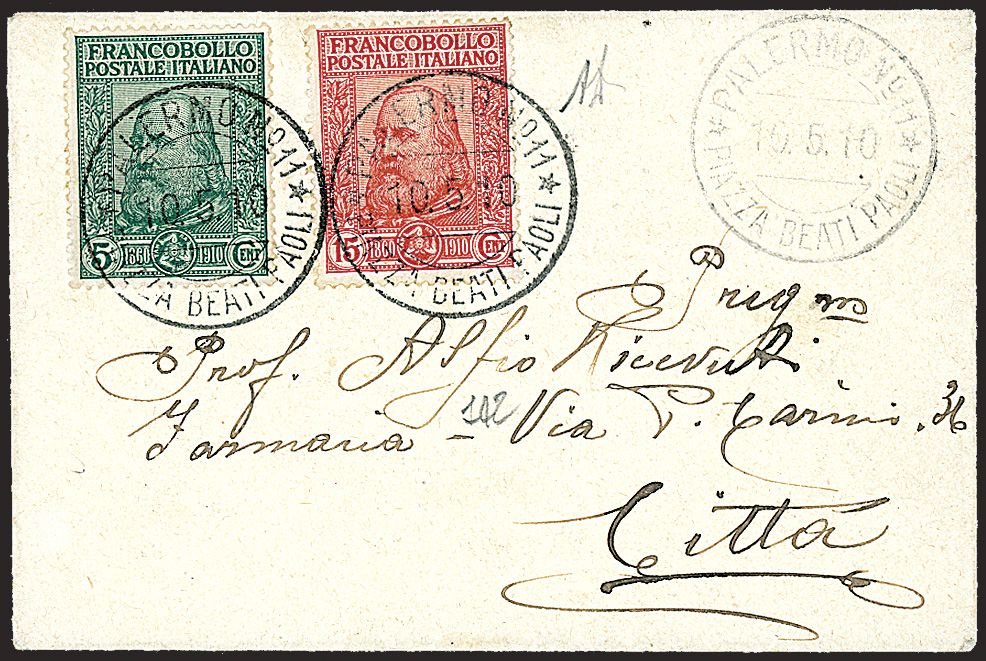 FRANCOBOLLO
POSTALE ITALIANO
5 1860 1910 CENT
FRANCOBOLLO
POSTALE ITALIANO
15 1860 1910 CENT
PALERMO No 11
10.5.10
ZZA BEATI PAOLI
PALERMO No 11
10.5.10
ZZA BEATI PAOLI
PALERMO No 11
10.5.10
PIAZZA BEATI PAOLI
Preg mo
Prof. Alfio Ricevuti
142
Farmacia - Via P. Carini. 36
Città